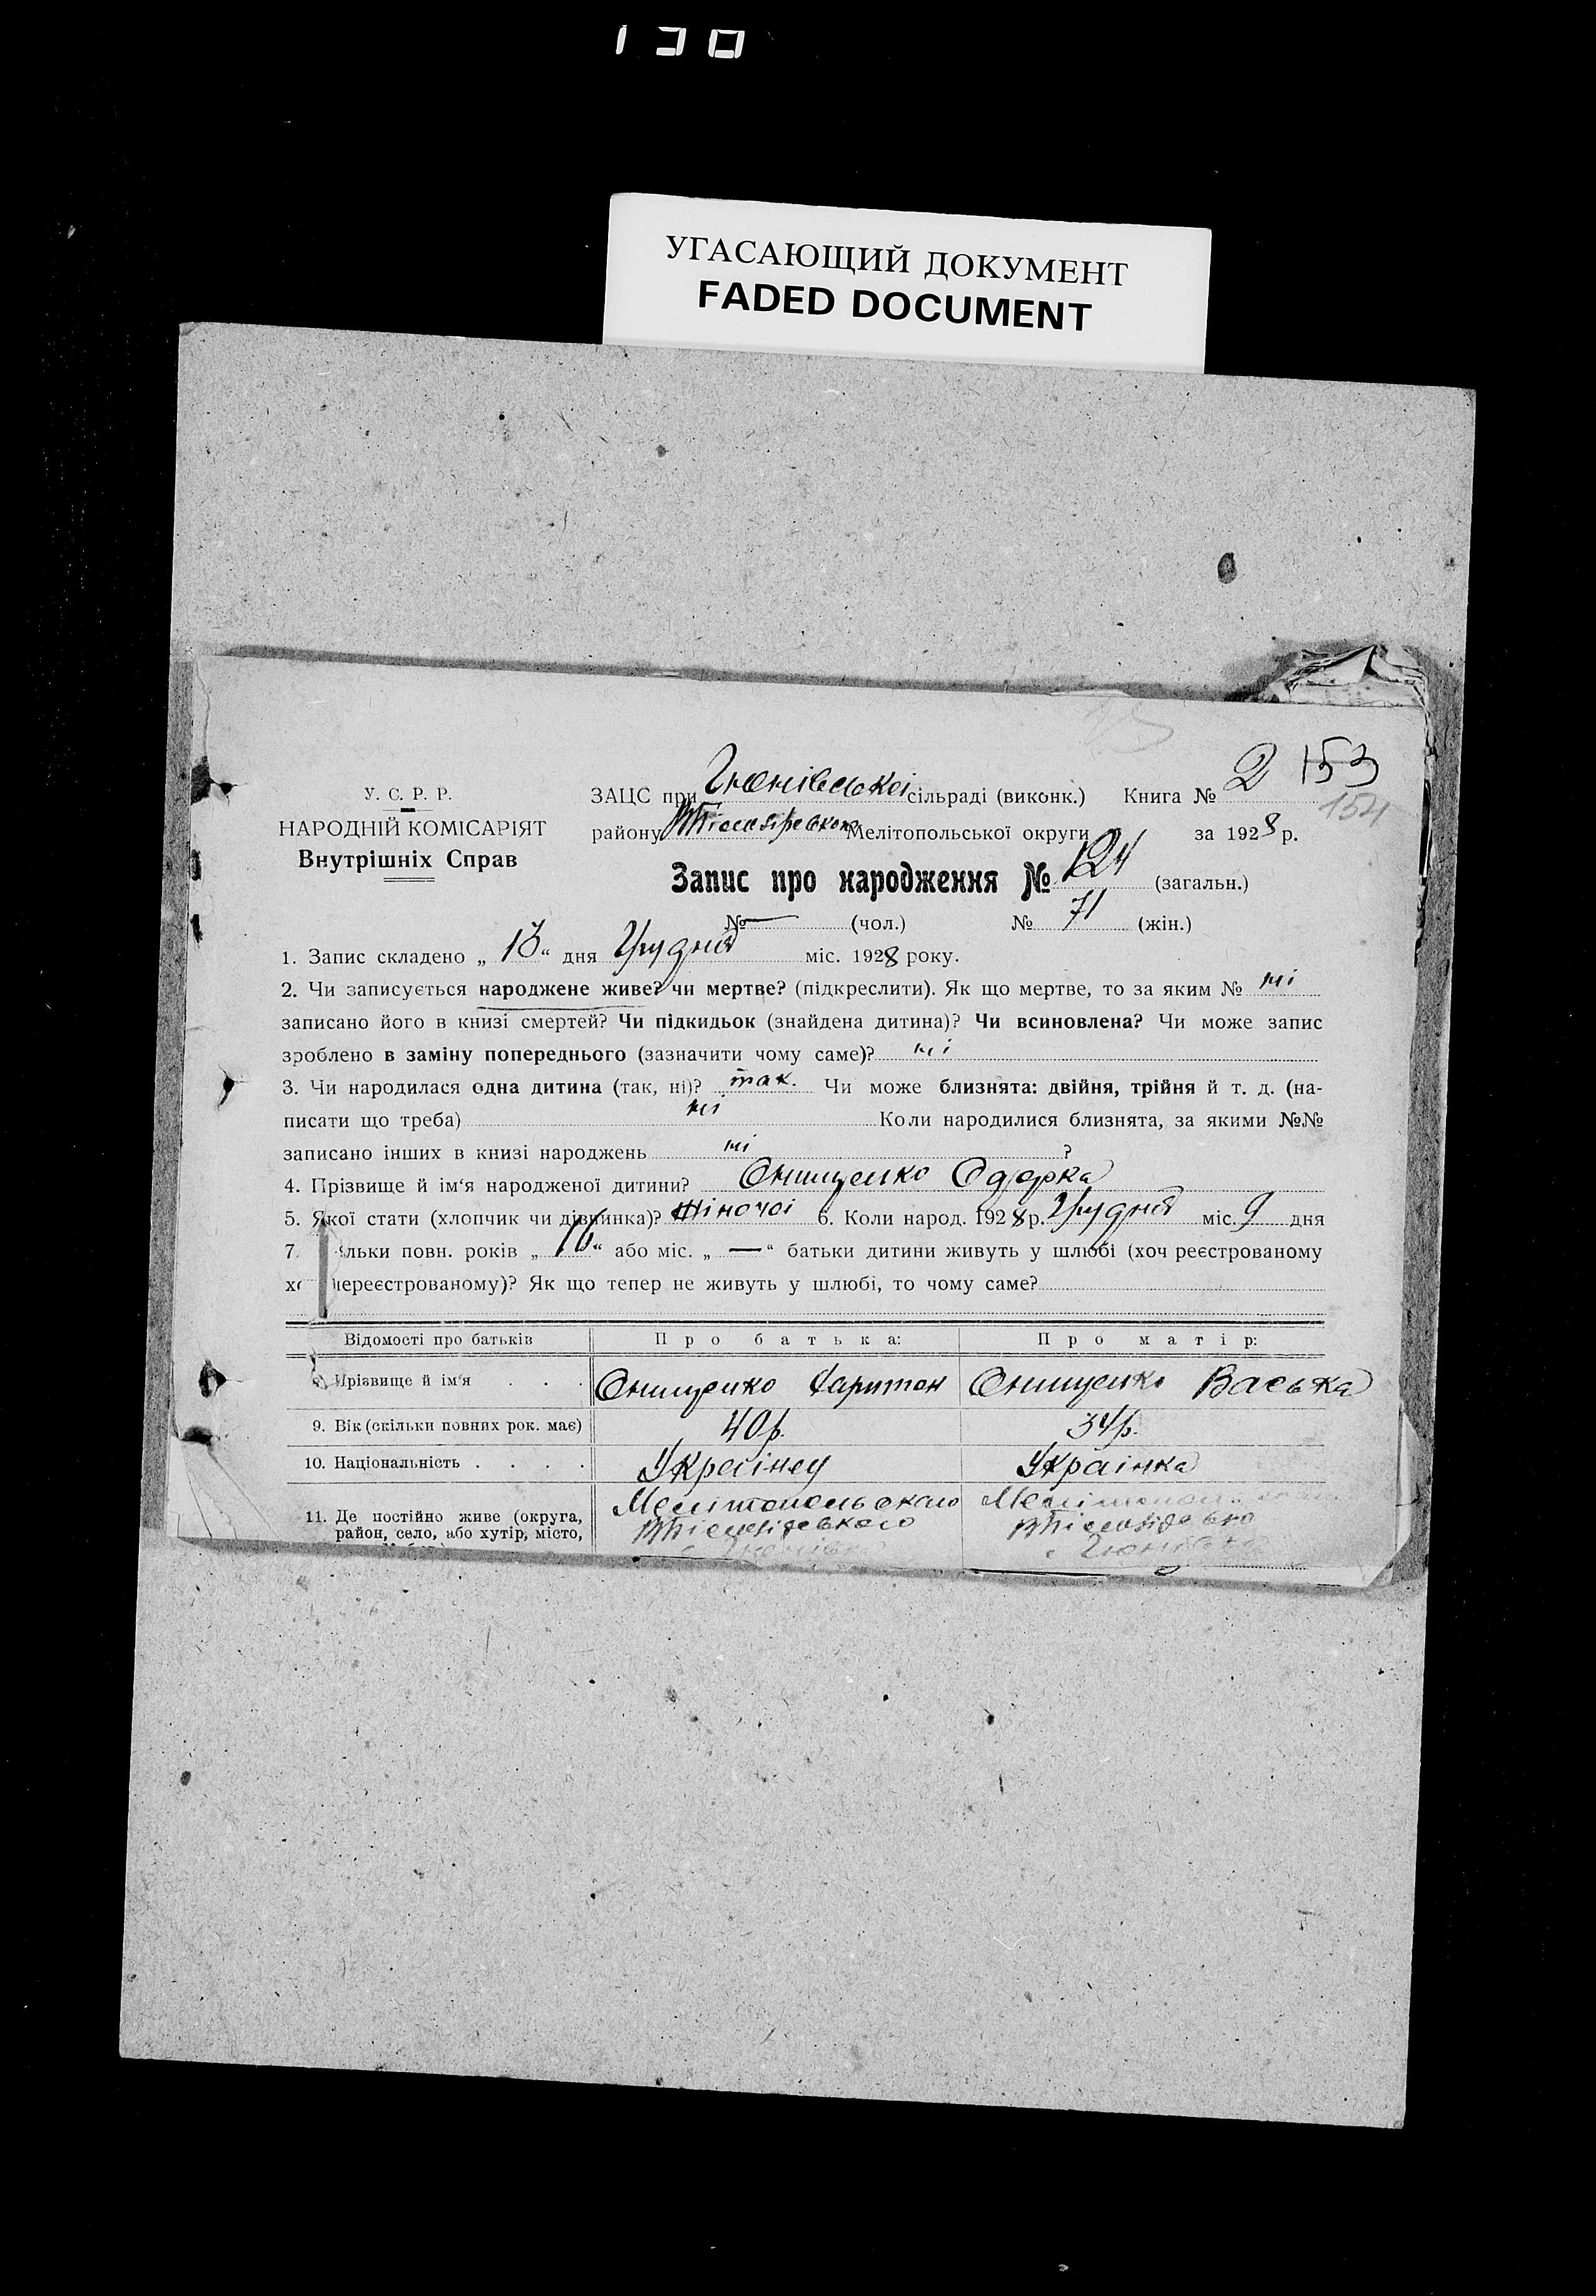 130
УГАСАЮЩИЙ ДОКУМЕНТ
FADED DOCUMENT
2 153
154
У. С. Р. Р.
НАРОДНІЙ КОМІСАРІЯТ
Внутрішніх Справ
ЗАЦС при Гюнівської сільраді (виконк.) Книга №
району Мелітопольської округи за 1928 р.
Запис про народження № 124 (загальн.)
№ — (чол.) № 71 (жін.)
1. Запис складено „ 13 “ дня Грудня міс. 1928 року.
2. Чи записується народжене живе? чи мертве? (підкреслити). Як що мертве, то за яким № ні
записано його в книзі смертей? Чи підкидьок (знайдена дитина)? Чи всиновлена? Чи може запис
зроблено в заміну попереднього (зазначити чому саме)? ні
3. Чи народилася одна дитина (так, ні)? так. Чи може близнята: двійня, трійня й т. д. (на-
писати що треба) ні Коли народилися близнята, за якими №№
записано інших в книзі народжень ні ?
4. Прізвище й ім‘я народженої дитини? Онищенко Одарка
5. Якої стати (хлопчик чи дівчинка)? жіночої 6. Коли народ. 1928 р. Грудня міс. 9 дня
7. ільки повн. років „ 16 “ або міс. „ — “ батьки дитини живуть у шлюбі (хоч реєстрованому
хо нереєстрованому)? Як що тепер не живуть у шлюбі, то чому саме?
Відомості про батьків Про батька: Про матір:
8. Прізвище й ім‘я . . . Онищенко Харитон Онищенко Васька
9. Вік (скільки повних рок. має) 40 р. 34 р.
10. Національність . . . . Українец Українка
11. Де постійно живе (округа, Мелітопольского
район, село, або хутір, місто,
с. Гюнівка с Гюнівка